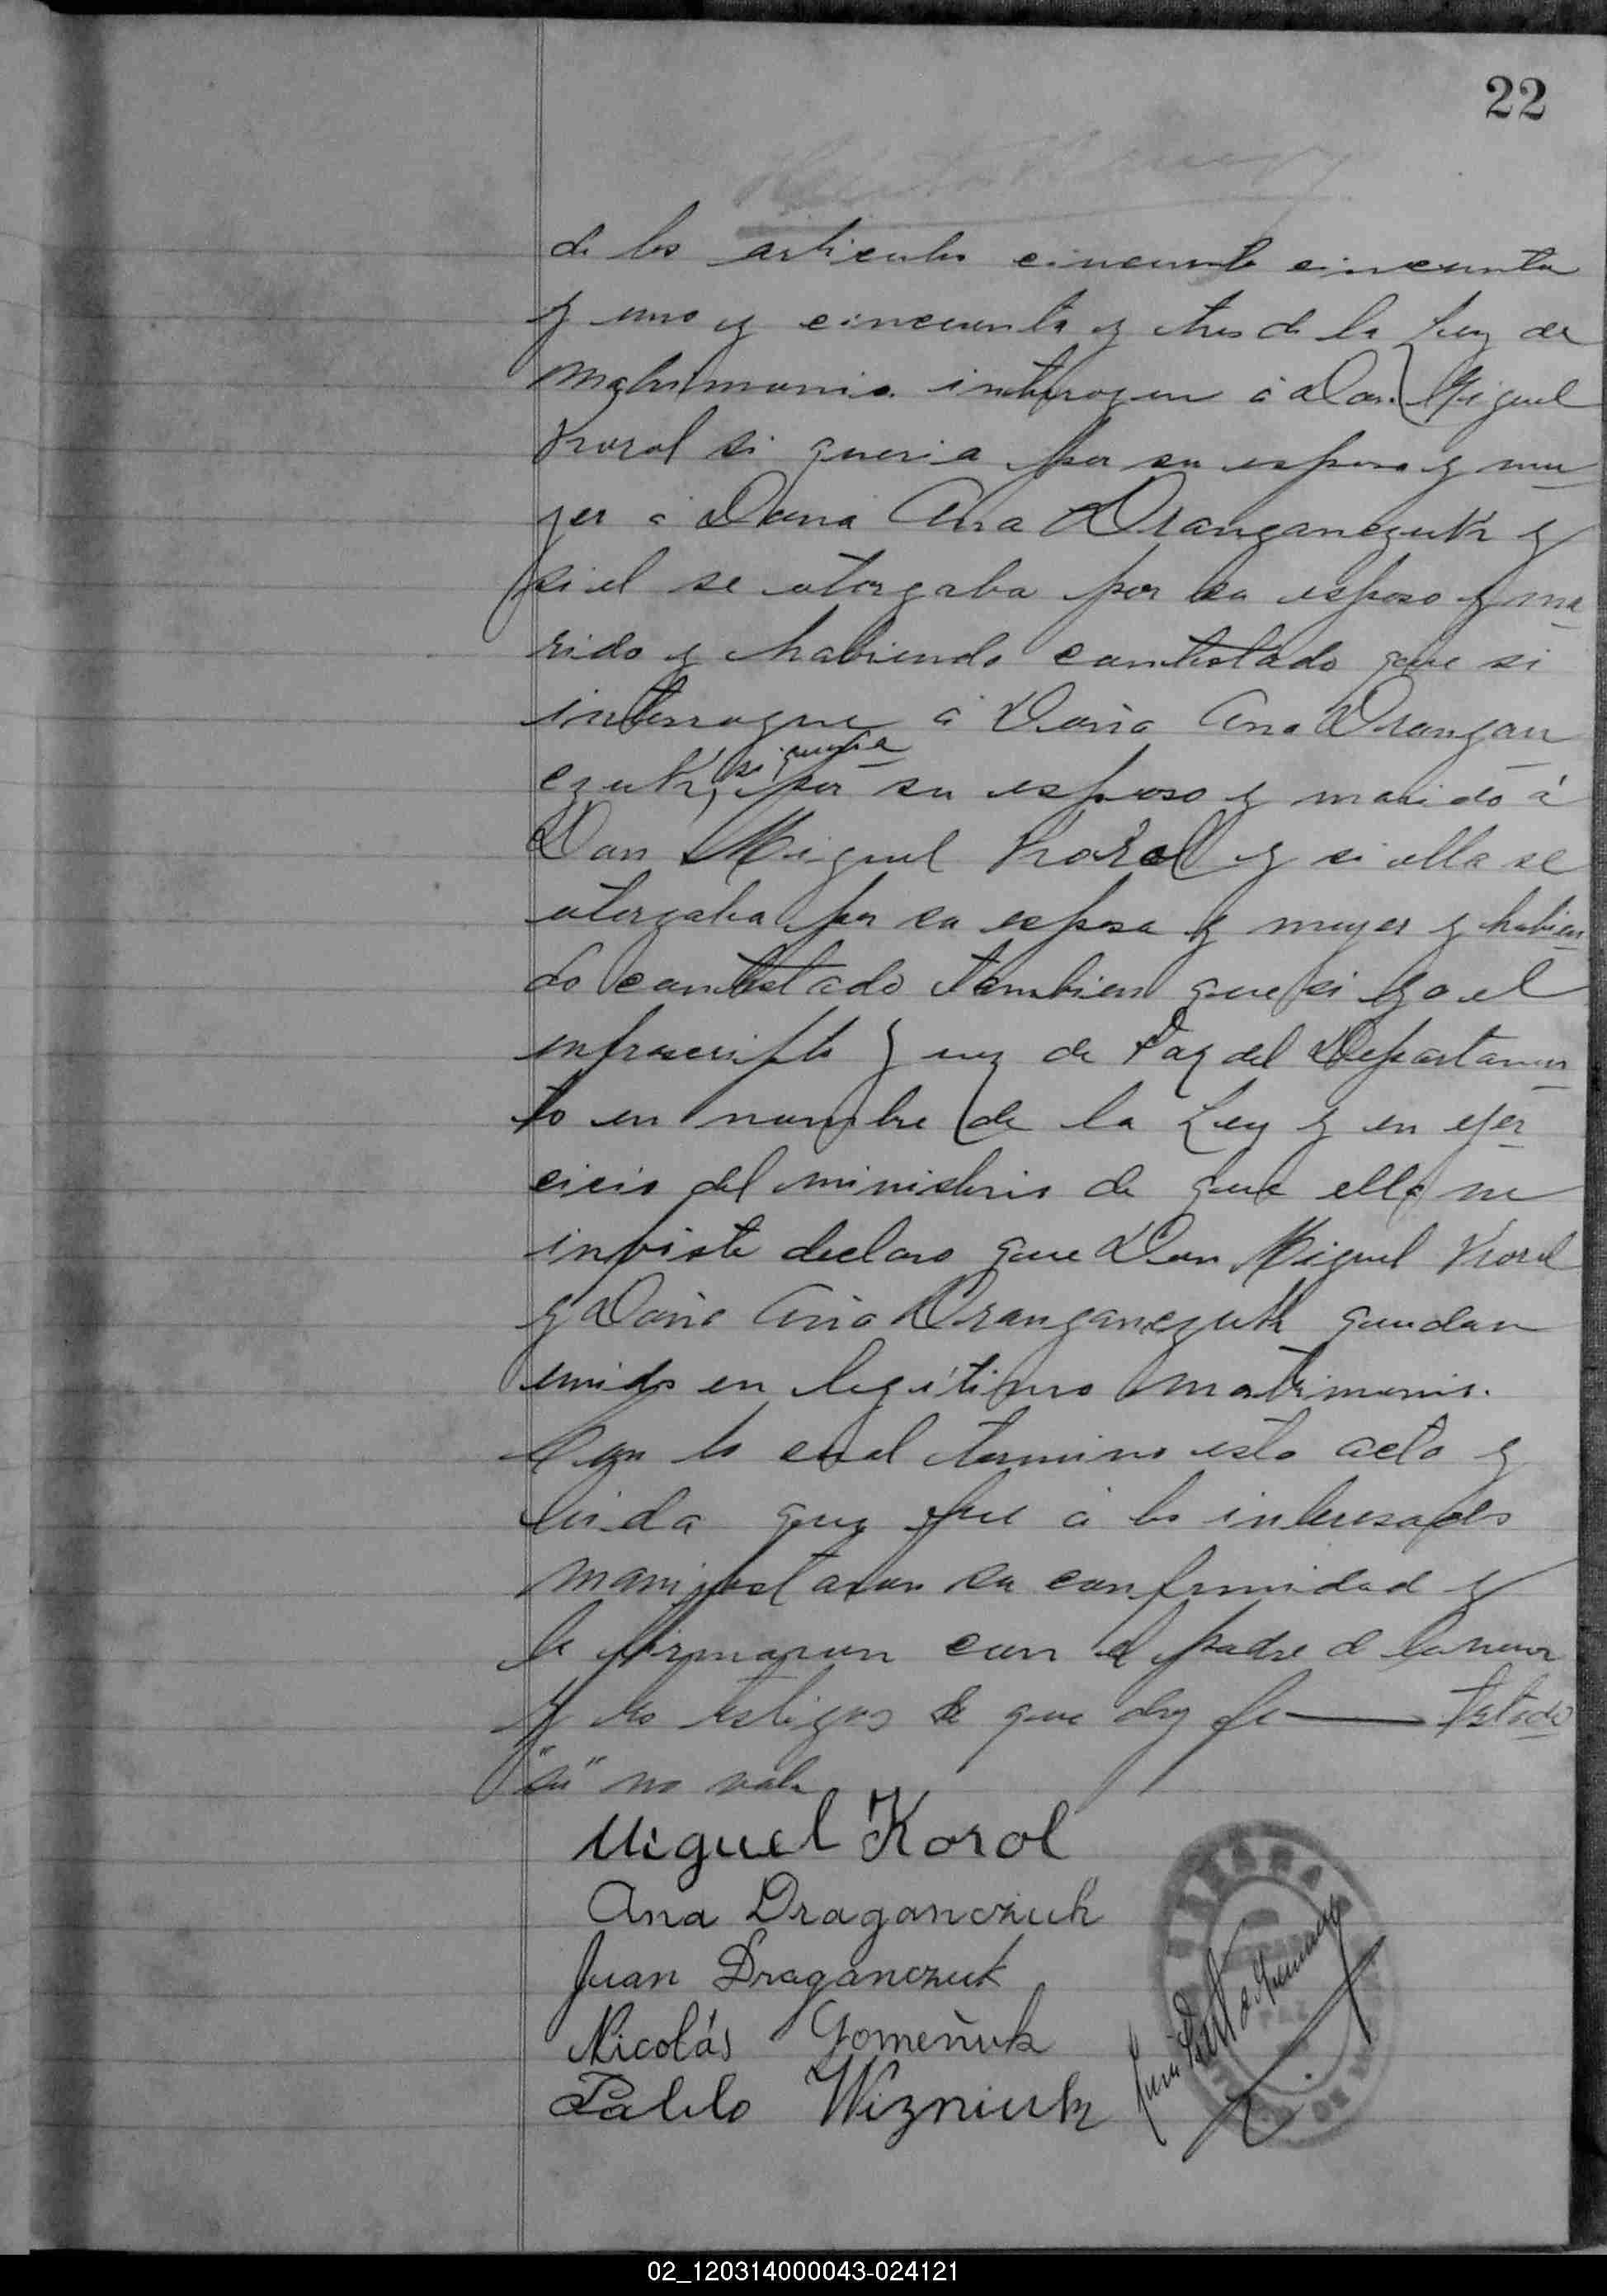 22
de los articulos cincuenta cincuenta
y uno y cincuenta y tres de la Ley de
matrimonio interrogue á Don Miguel
Korol si queria por su esposa y mu
jer á Doña Ana Dranganczuk y
si el se otorgaba por su esposo y ma
rido y habiendo contestado que si
interrogue á Doña Ana Drangan
czuk, si queria por su esposo y marido á
Don Miguel Korol y si ella se
otorgaba por su esposa y mujer y habien
do contestado tambien que si yo el
infrascripto Juez de Paz del Departamen
to en nombre de la Ley y en ejer
cicio del ministerio de que ella me
inviste declaro que Don Miguel Korol
y Doña Ana Dranganczuk quedan
unidos en legítimo matrimonio.
Con lo cual termino esto acto y
leida que fue á los interesados
manifestaron su conformidad y
la firmaron con el padre d la novia
y los testigos de que doy fe — Testado
"su" no vale
Miguel Korol
Ana Draganczuk
Juan Draganczuk
Nicolás Gomeñuk
Pablo Wizniuk
02_120314000043-024121